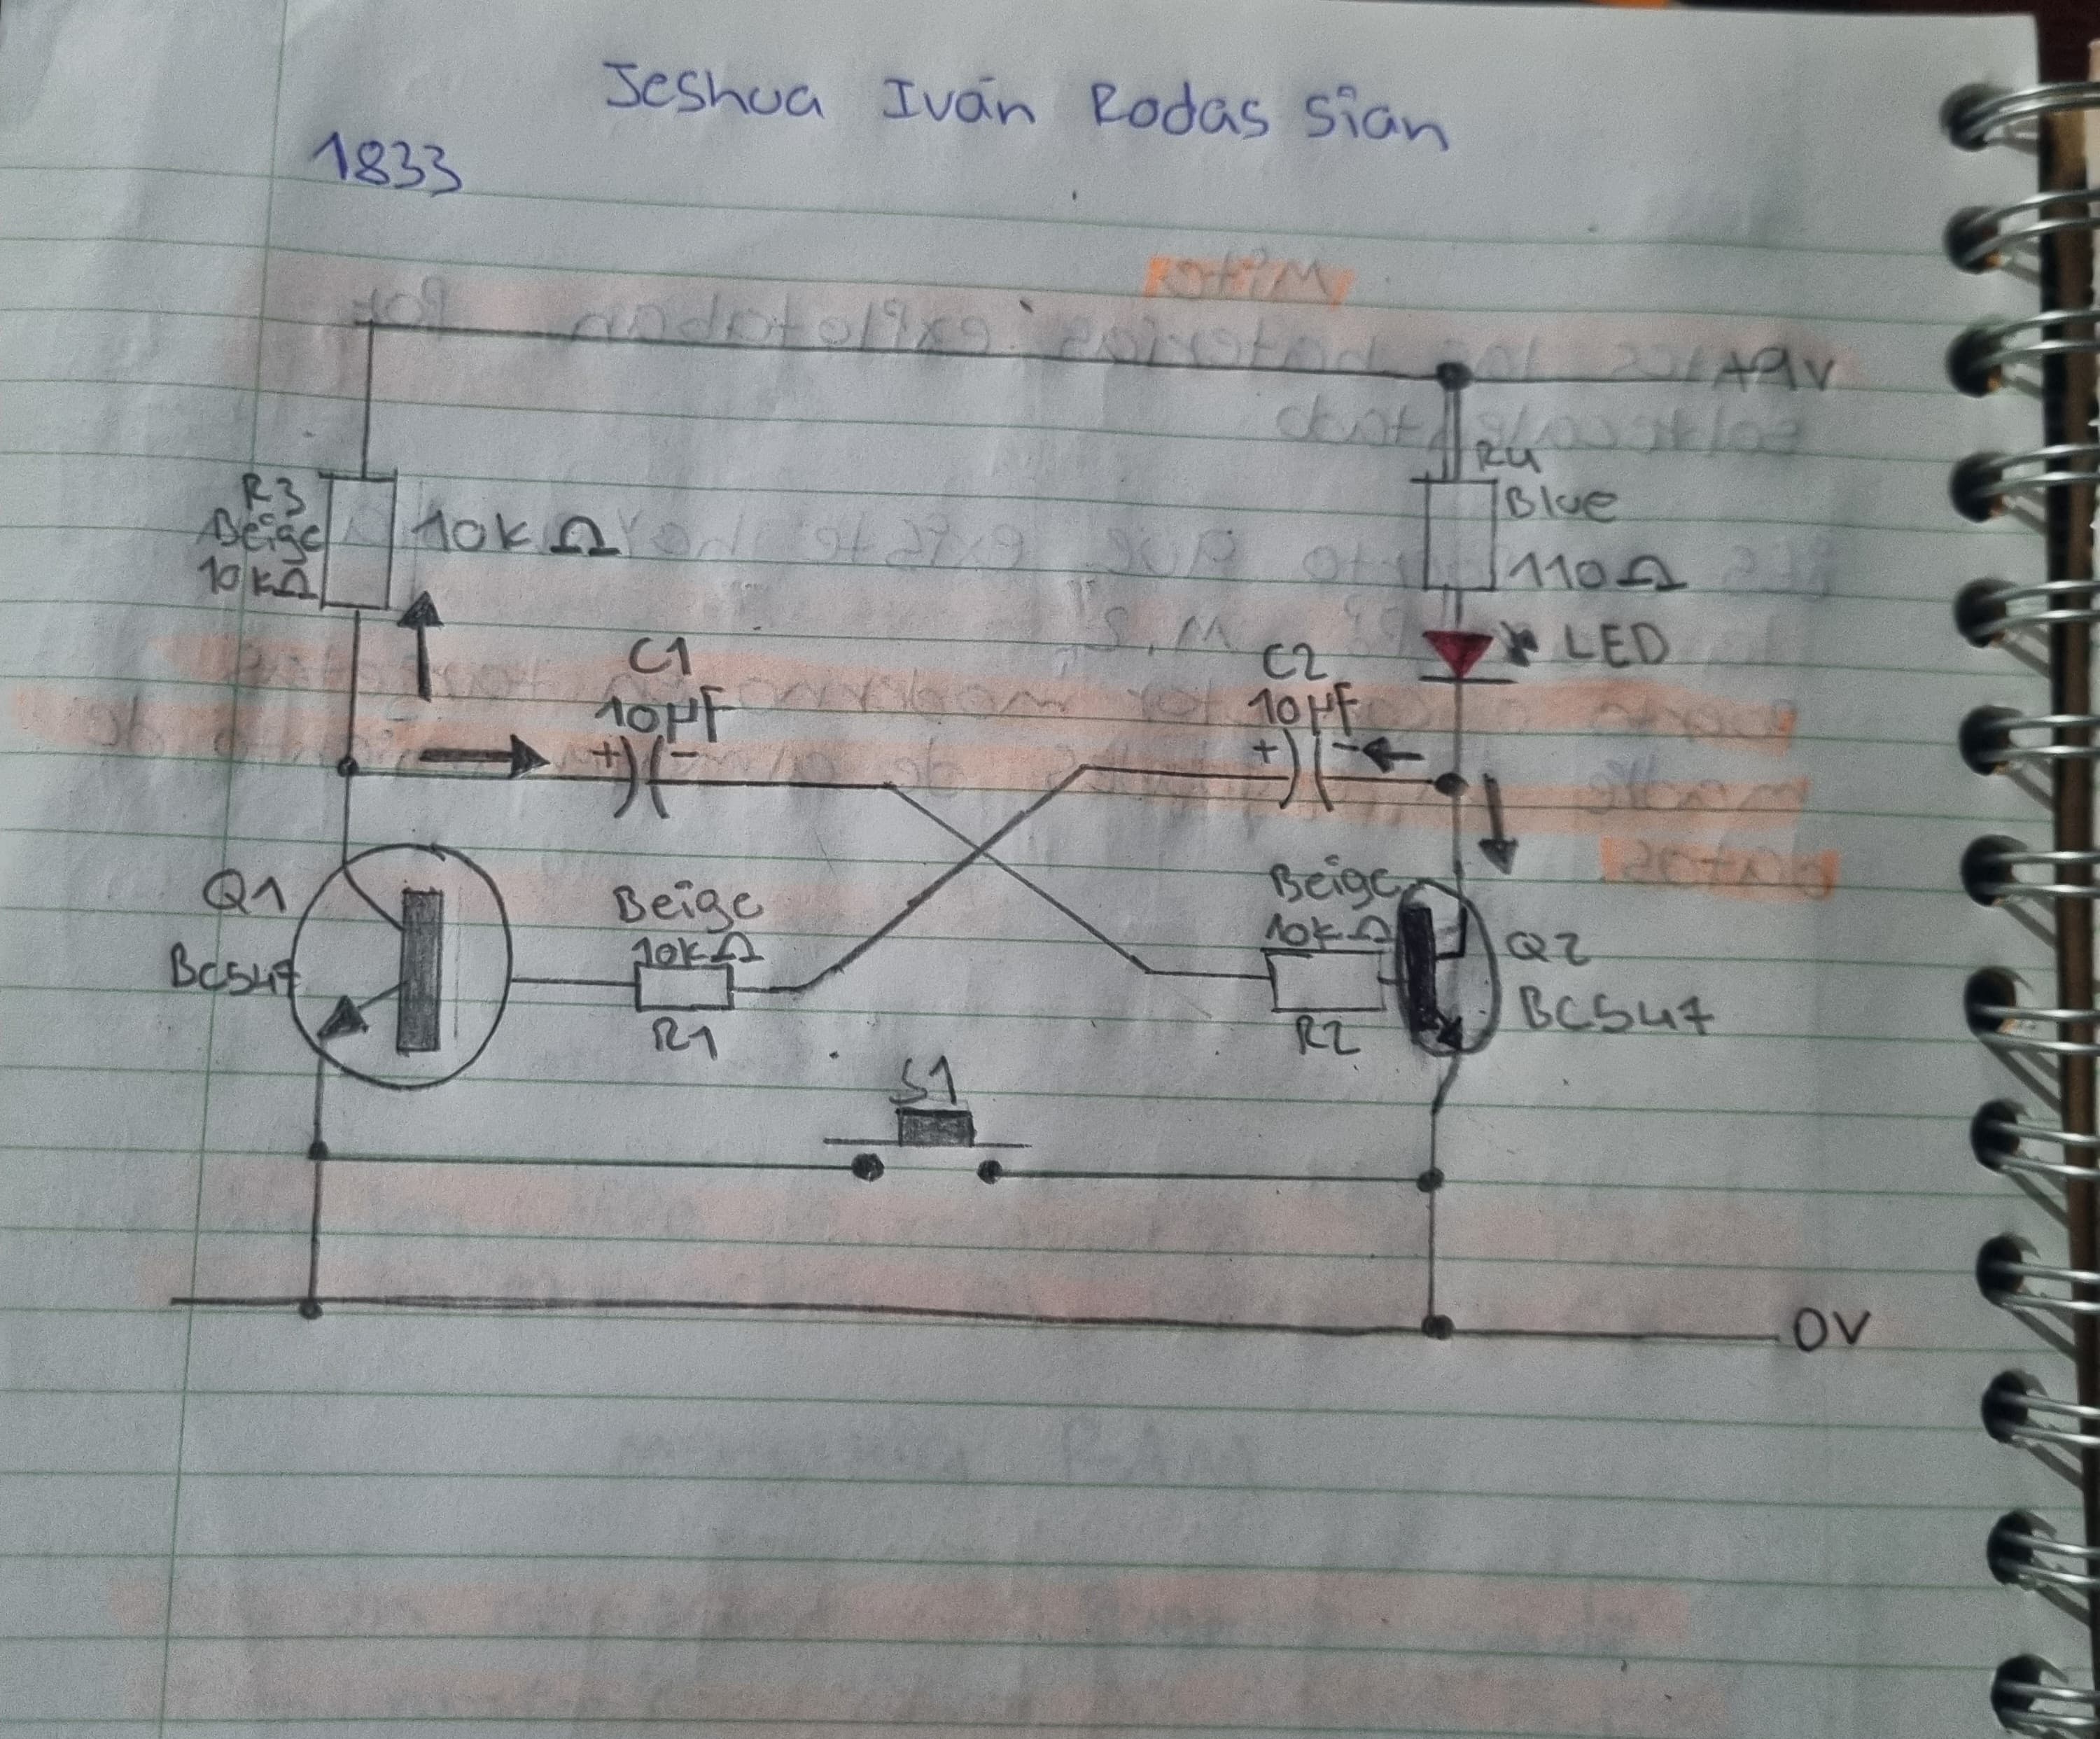 Jeshua Iván Rodas Sian
1833
+9V
R3
Beige
10kΩ
10kΩ
R4
Blue
110Ω
LED
C1
10μF
+ -
C2
10μF
+ -
Q1
BC547
Beige
10kΩ
R1
Beige
10kΩ
R2
Q2
BC547
S1
0V